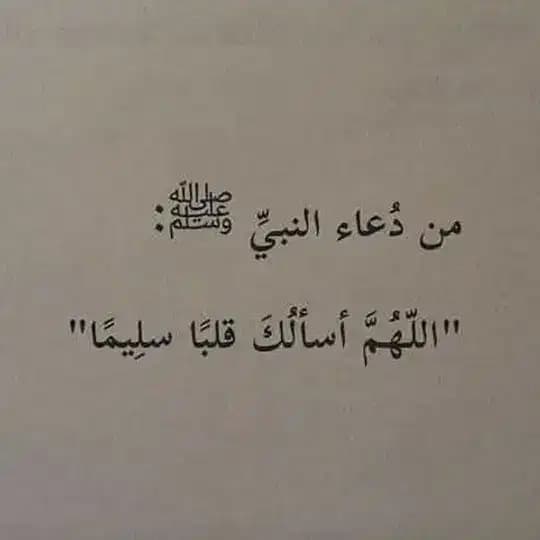 من دُعاء النبيِّ ﷺ:
"اللّهُمَّ أسألُكَ قلبًا سلِيمًا"